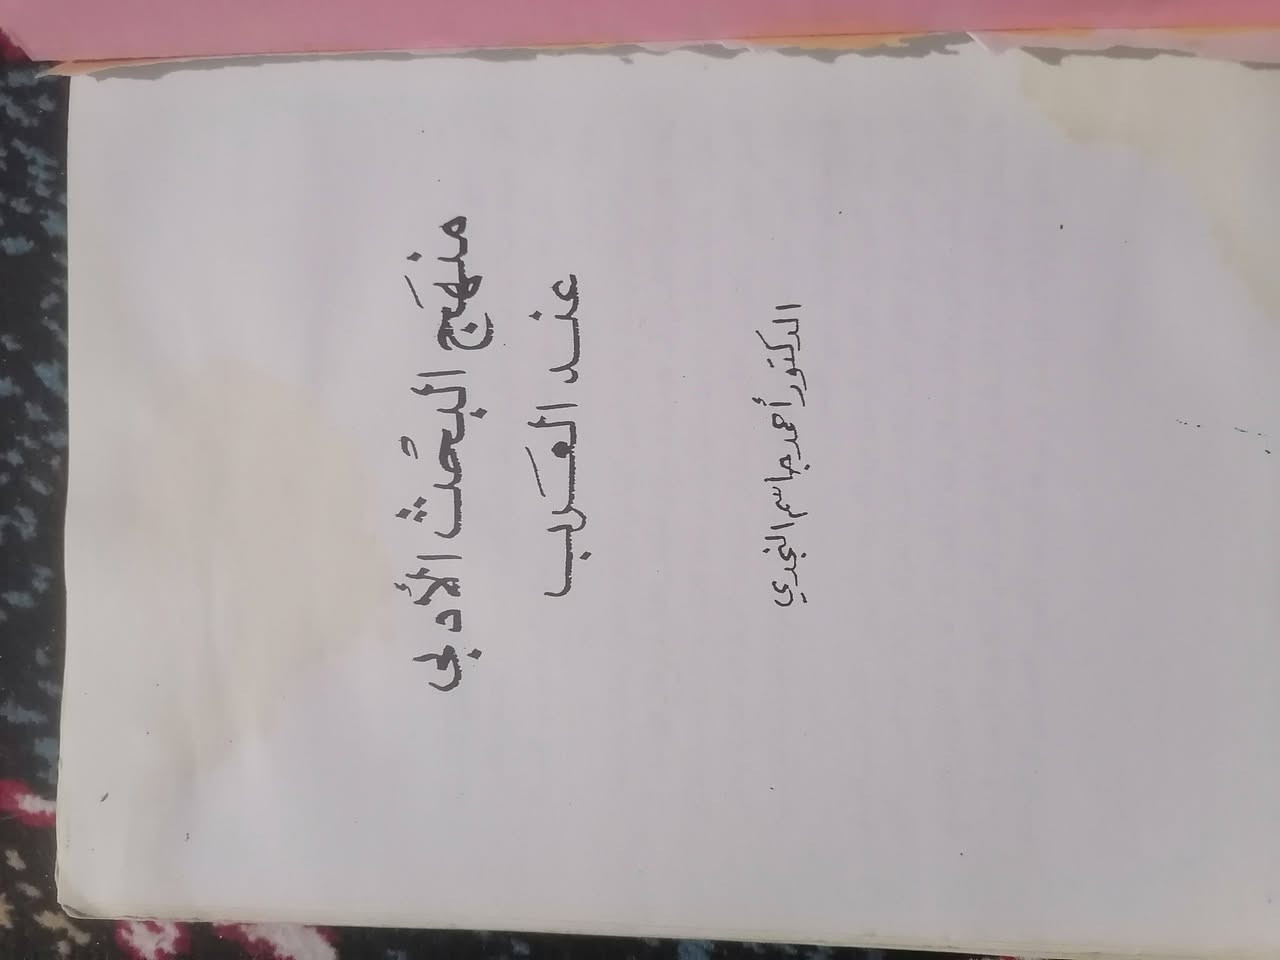 منهَج البحُث الأدبي
عند العَرب
الدكتور أحمد جاسم النجدي